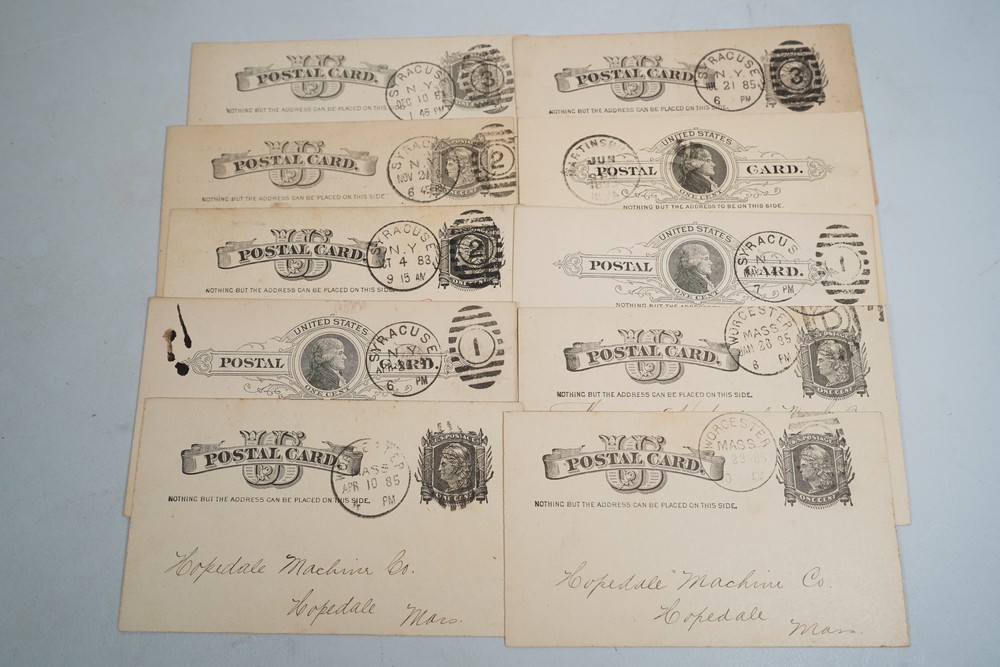 US
POSTAL CARD.
NOTHING BUT THE ADDRESS CAN BE PLACED ON THIS SIDE
SYRACUSE
N.Y.
DEC 10
1 45 PM
3
US
POSTAL CARD.
NOTHING BUT THE ADDRESS CAN BE PLACED ON THIS
SYRACUSE
N.Y.
JUL 21 85
6 PM
3
US
POSTAL CARD.
NOTHING BUT THE ADDRESS CAN BE PLACED ON THIS SIDE
SYRACUSE
N.Y.
NOV
6 45 PM
2
ONE CENT
UNITED STATES
POSTAL CARD.
ONE CENT
NOTHING BUT THE ADDRESS TO BE ON THIS SIDE.
JUN
US
POSTAL CARD.
NOTHING BUT THE ADDRESS CAN BE PLACED ON THIS SIDE.
SYRACUSE
N.Y.
4 83
9 15 AM
2
ONE CENT
UNITED STATES
POSTAL CARD.
ONE CENT
NOTHING BUT THE ADDRESS
SYRACUS
7 PM
1
UNITED STATES
POSTAL CARD.
ONE CENT
SYRACUSE
N.Y.
APR
6 PM
1
US
POSTAL CARD.
NOTHING BUT THE ADDRESS CAN BE PLACED ON THIS SIDE.
WORCESTER
MASS
85
8 PM
ONE CENT
US
POSTAL CARD.
NOTHING BUT THE ADDRESS CAN BE PLACED ON THIS SIDE.
MASS
APR 10 85
PM
U.S. POSTAGE
ONE CENT
Hopedale Machine Co.
Hopedale
Mass.
US
POSTAL CARD.
NOTHING BUT THE ADDRESS CAN BE PLACED ON THIS SIDE.
WORCESTER
MASS
U.S. POSTAGE
ONE CENT
Hopedale Machine Co.
Hopedale
Mass.